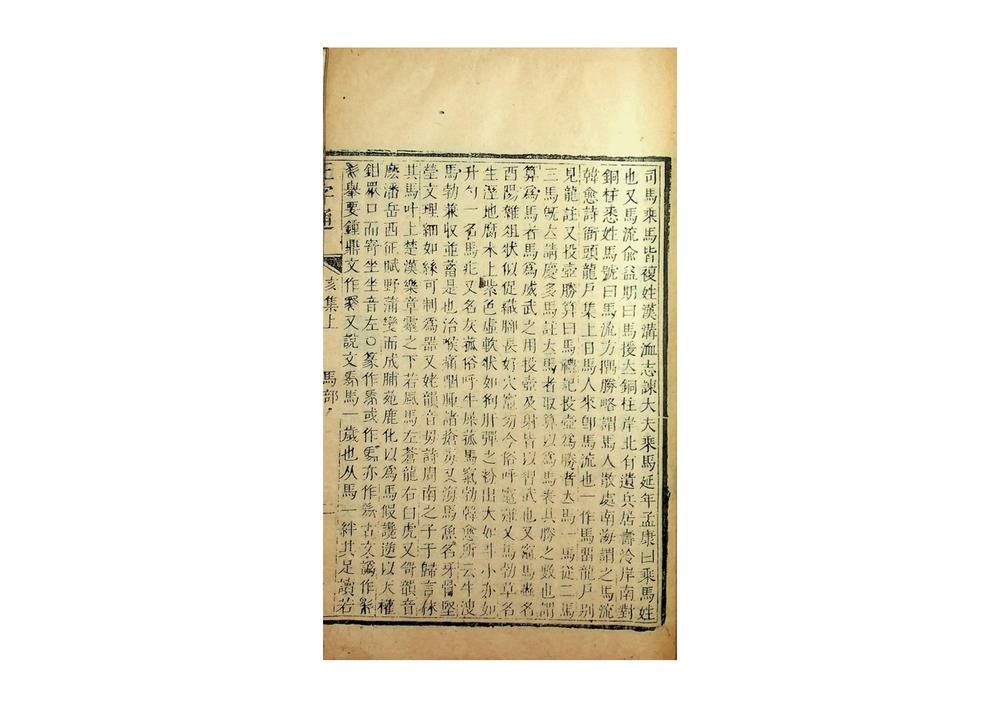 司馬乘馬皆複姓漢溝洫志諫大夫乘馬延年孟康曰乘馬姓
也又馬流俞益期曰馬援立銅柱岸北有遺兵居壽泠岸南對
銅柱悉姓馬號曰馬流方隅勝略謂馬人散處南海謂之馬流
韓愈詩衙頭龍戶集上日馬人來卽馬流也一作馬留龍戶別
見龍註又投壺勝算曰馬禮記投壺爲勝者立馬一馬從二馬
三馬旣立請慶多馬註立馬者取算以爲馬表其勝之數也謂
算爲馬者馬爲威武之用投壺及射皆以習武也又竈馬蟲名
酉陽雜俎狀似促織腳長好穴竈旁今俗呼竈雞又馬勃草名
生溼地腐木上紫色虛軟狀如狗肝彈之粉出大如斗小亦如
升勺一名馬疕又名灰菰俗呼牛屎菰馬窳勃韓愈所云牛溲
馬勃兼收並蓄是也治喉痛咽唾諸瘡毒又海馬魚名牙骨堅
瑩文理細如絲可制爲器又姥韻音母詩周南之子于歸言秣
其馬叶上楚漢樂章靈之下若風馬左蒼龍右白虎又哿韻音
麽潘岳西征賦野蒲變而成脯苑鹿化以爲馬假讒逆以天權
鉗眾口而寄坐坐音左○篆作或作亦作古文譌作
舉要鍾鼎文作又說文馬一歲也从馬一絆其足讀若
正字通 亥集上 馬部 二